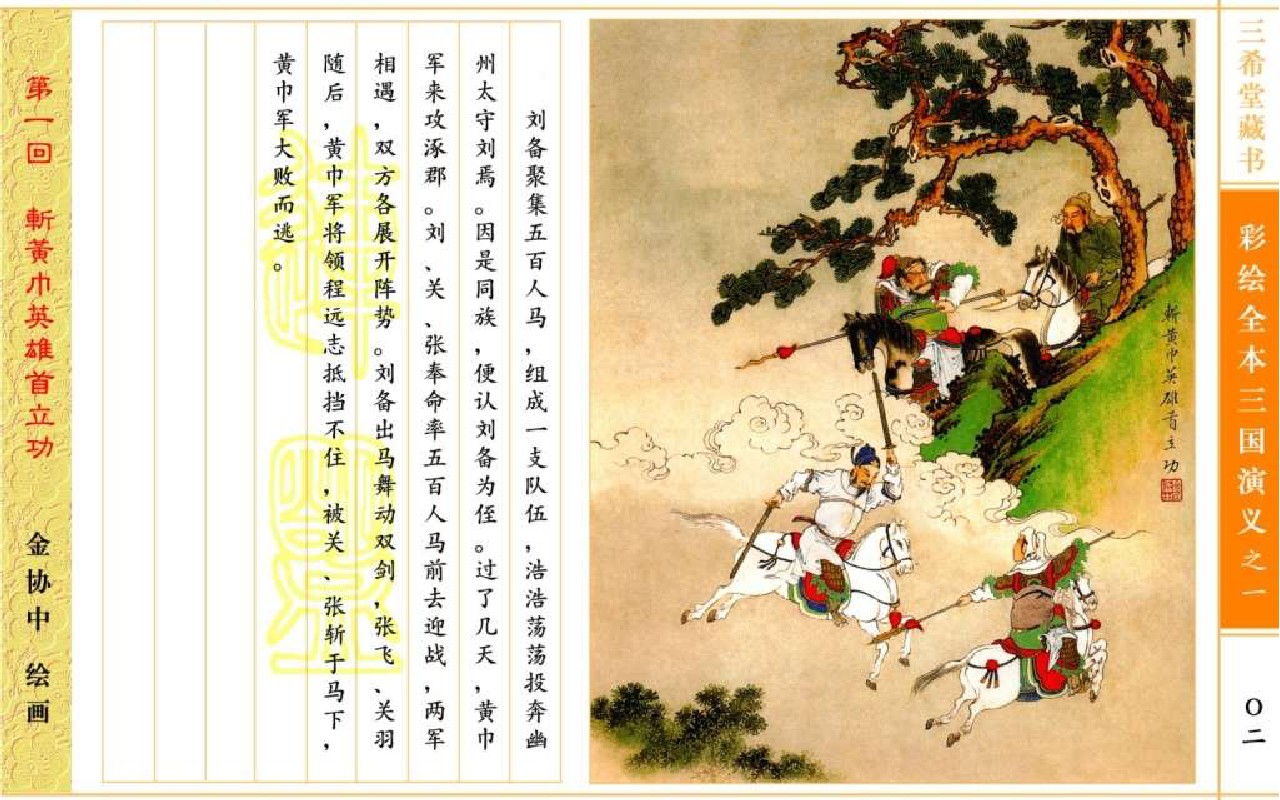 三希堂藏书
彩绘全本三国演义之一
〇二
斩黄巾英雄首立功
刘备聚集五百人马,组成一支队伍,浩浩荡荡投奔幽
州太守刘焉。因是同族,便认刘备为侄。过了几天,黄巾
军来攻涿郡。刘、关、张奉命率五百人马前去迎战,两军
相遇,双方各展开阵势。刘备出马舞动双剑,张飞、关羽
随后,黄巾军将领程远志抵挡不住,被关、张斩于马下,
黄巾军大败而逃。
第一回 斬黃巾英雄首立功
金协中 绘画